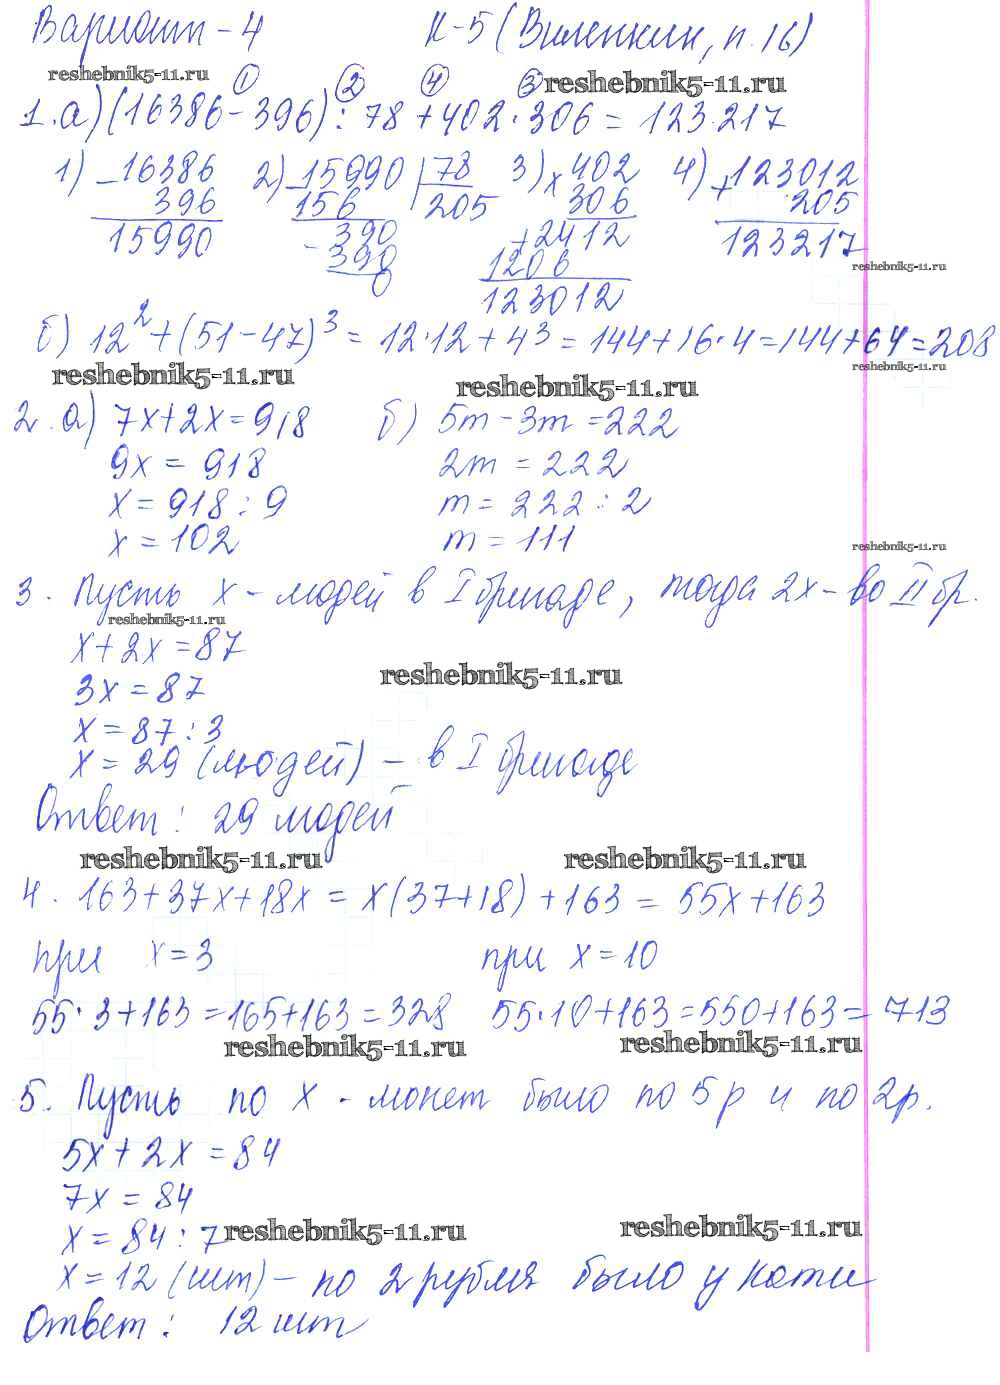 Вариант - 4 К-5 (Виленкин, п. 16)
reshebnik5-11.ru ① ② ④ ③ reshebnik5-11.ru
1. а) (16386 - 396) : 78 + 402 · 306 = 123 217
1) - 16386 2) - 15990 | 78 3) × 402 4) + 123012
396 156 205 306 205
15990 390 + 2412 123217
- 390 1206 reshebnik5-11.ru
0 123012
б) 12² + (51 - 47)³ = 12 · 12 + 4³ = 144 + 16 · 4 = 144 + 64 = 208
reshebnik5-11.ru reshebnik5-11.ru reshebnik5-11.ru
2. а) 7x + 2x = 918 б) 5m - 3m = 222
9x = 918 2m = 222
x = 918 : 9 m = 222 : 2
x = 102 m = 111
reshebnik5-11.ru
3. Пусть x - людей в I бригаде, тогда 2x - во II бр.
reshebnik5-11.ru
x + 2x = 87
3x = 87 reshebnik5-11.ru
x = 87 : 3
x = 29 (людей) - в I бригаде
Ответ: 29 людей
reshebnik5-11.ru reshebnik5-11.ru
4. 163 + 37x + 18x = x(37 + 18) + 163 = 55x + 163
при x = 3 при x = 10
55 · 3 + 163 = 165 + 163 = 328 55 · 10 + 163 = 550 + 163 = 713
reshebnik5-11.ru reshebnik5-11.ru
5. Пусть по x - монет было по 5 р и по 2р.
5x + 2x = 84
7x = 84
x = 84 : 7 reshebnik5-11.ru reshebnik5-11.ru
x = 12 (шт) - по 2 рубля было у Кати
Ответ: 12 шт